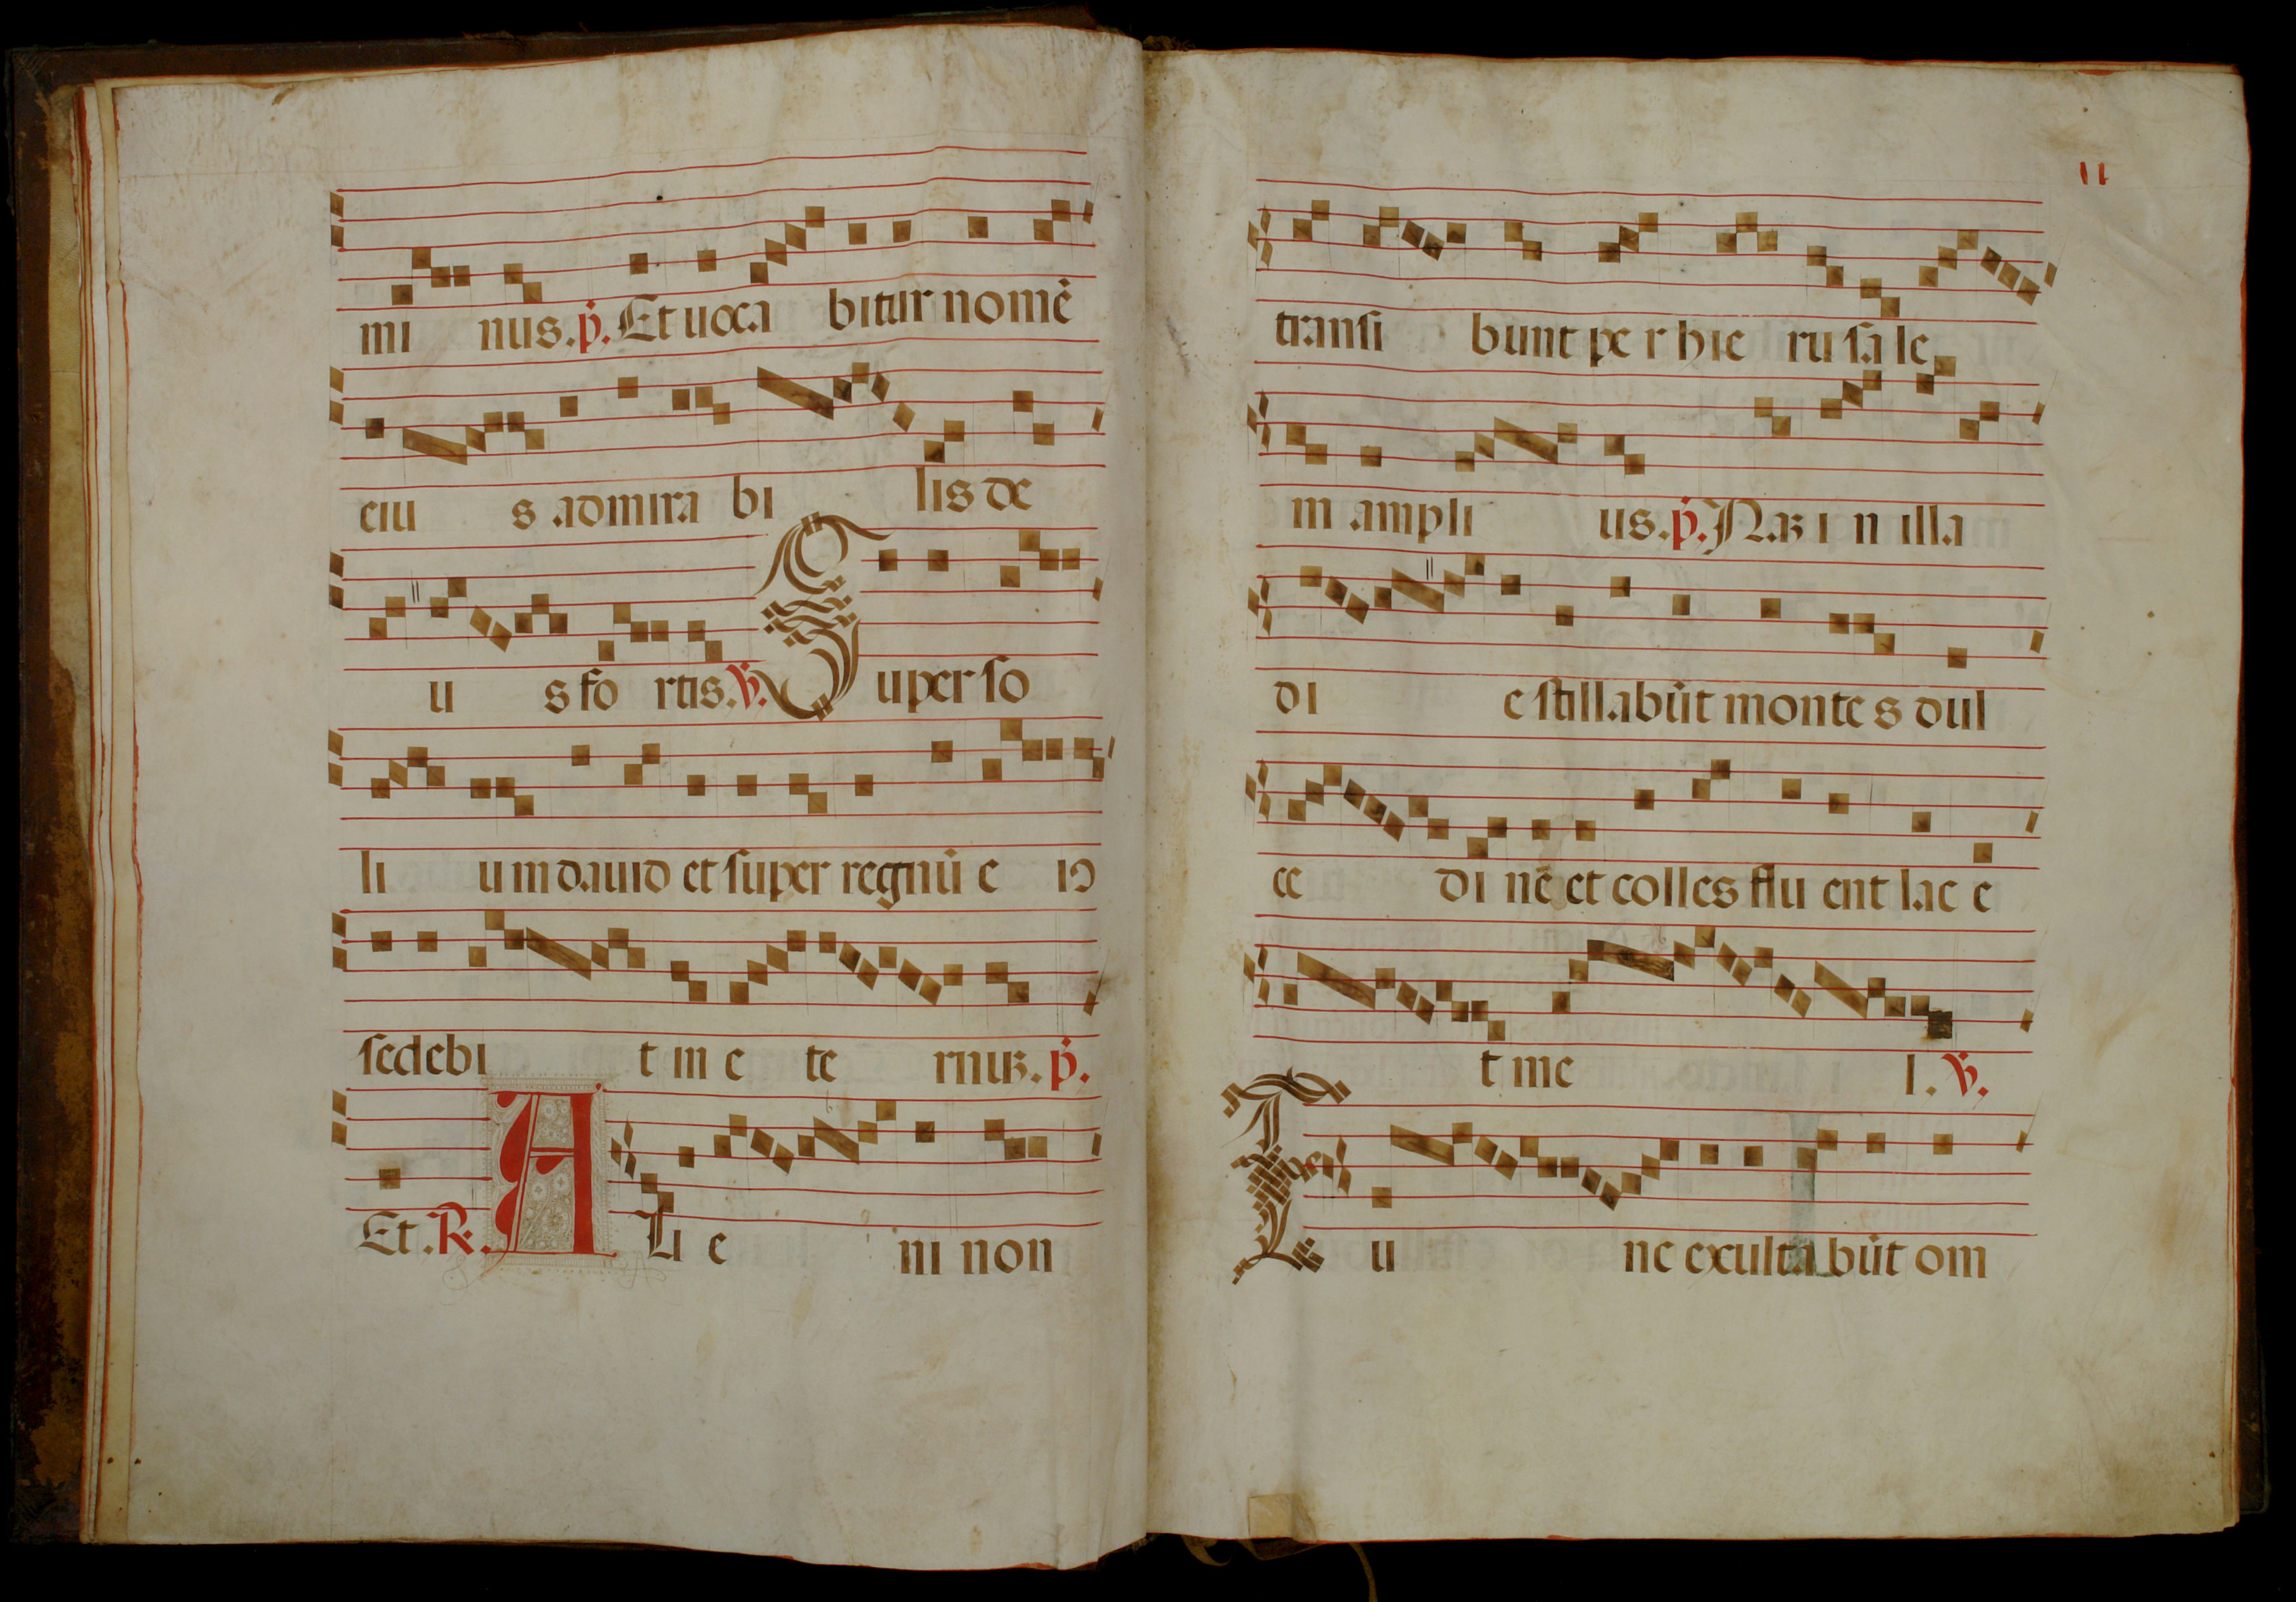 mi nus. p̃. Et uoca bitur nomẽ
eiu s admira bi lis de
u s fo rtis. ℣. Super so
li um dauid et super regnũ e iꝰ
sedebi t in e te rnuʒ. p̃.
Et. ℟. A Li e ni non
11
transi bunt pe r hie ru sa le
m ampli us. p̃. Naʒ i n illa
di e stillabũt monte s dul
ce di nẽ et colles flu ent lac e
t me l. ℣.
u ne exulta bũt om